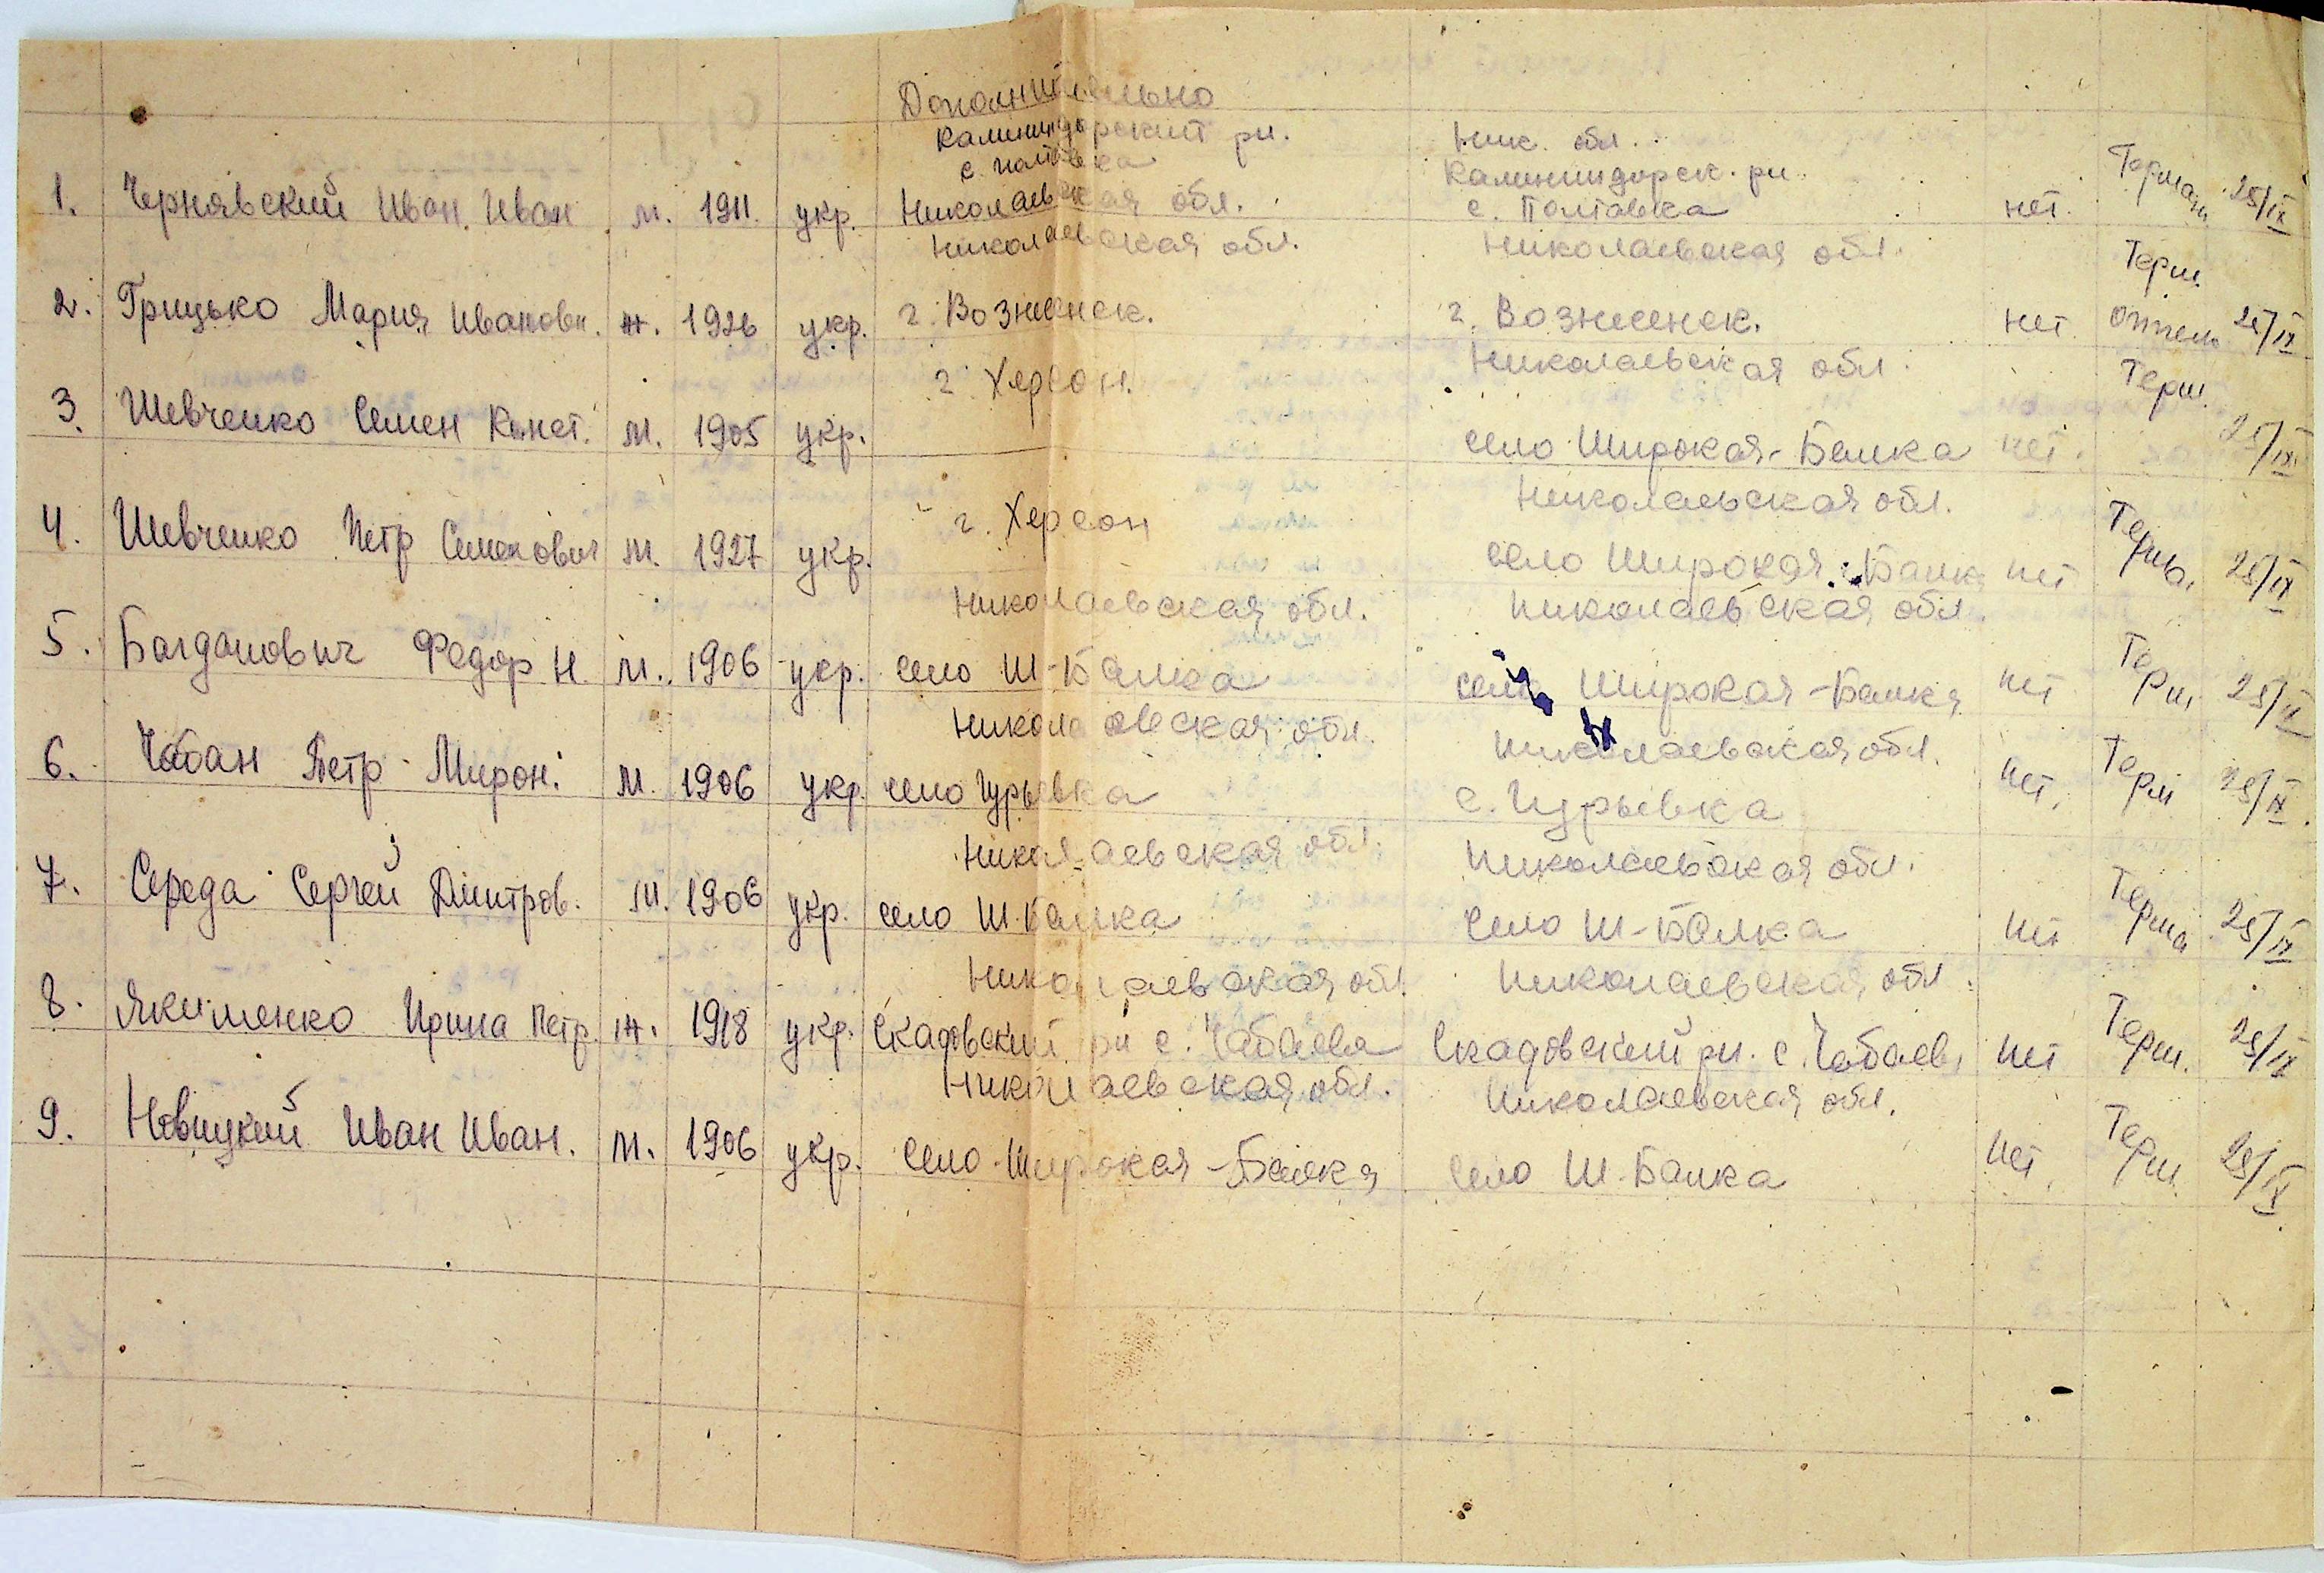 Дополнительно
Калининдорский рн. Ник. обл.
с. Полтавка Калининдорск. рн.
1. Чернявский Иван Иван м. 1911. укр. Николаевская обл. с. Полтавка нет. Герман 25/IX
Николаевская обл. Николаевская обл. Герм.
2. Грицько Мария Ивановн. ж. 1926 укр. г. Вознесенск. г. Вознесенск. нет 25/IX
г. Херсон. Николаевская обл. Герм.
3. Шевченко Семен Конст. м. 1905 укр. село Широкая-Балка нет. 25/IX
г. Херсон Николаевская обл.
4. Шевченко Петр Семенович м. 1927 укр. село Широкая-Балк нет Герма. 25/IX
Николаевская обл. Николаевская обл.
5. Багданович Федор Н. м. 1906 укр. село Ш-Балка село Широкая-Балка нет Герм 25/IX
Николаевская обл. Николаевская обл.
6. Чабан Петр Мирон. м. 1906 укр. село Гурьевка с. Гурьевка нет. Герм 25/IX
Николаевская обл. Николаевская обл.
7. Середа Сергей Дмитров. м. 1906 укр. село Ш.Балка село Ш-Балка нет Герма 25/IX
Николаевская обл. Николаевская обл.
8. Якименко Ирина Петр. ж. 1918 укр. Скадовский рн с. Чабаева Скадовский рн. с. Чабаев. нет Герм. 25/IX
Николаевская обл. Николаевская обл.
9. Новицкий Иван Иван. м. 1906 укр. село Широкая-Балка село Ш-Балка нет. Герм 25/IX